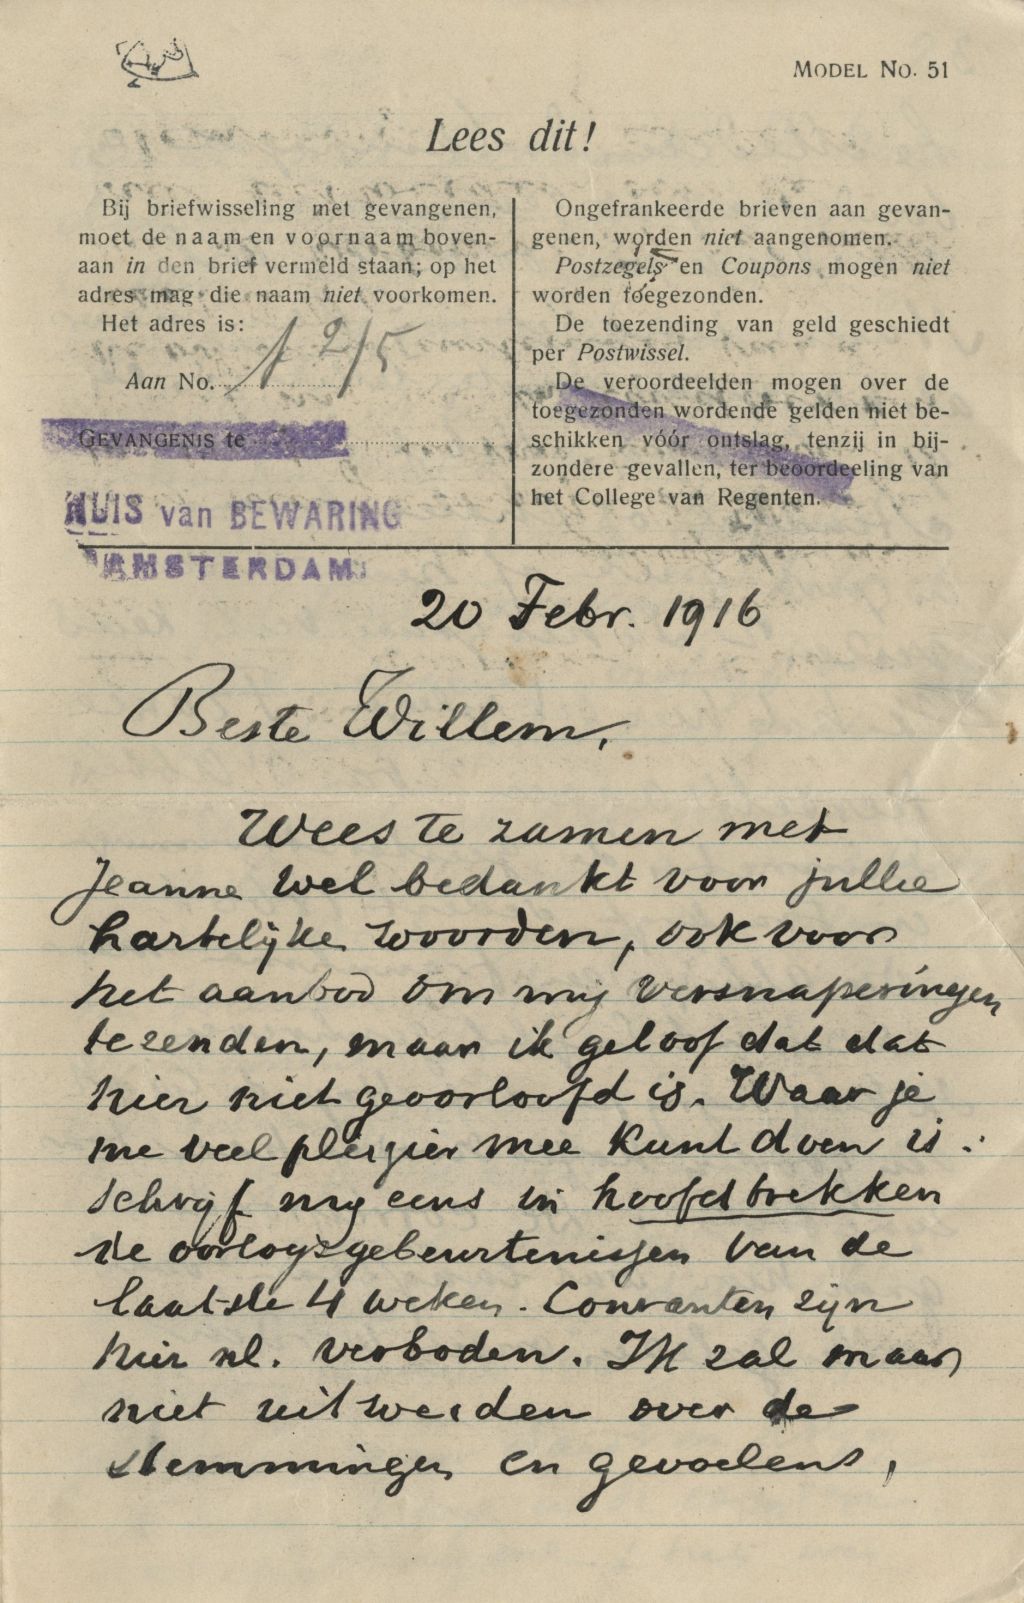 MODEL No. 51
Lees dit!
Bij briefwisseling met gevangenen,
moet de naam en voornaam boven-
aan in den brief vermeld staan; op het
adres mag die naam niet voorkomen.
Het adres is:
Aan No. 1 2/5
GEVANGENIS te
HUIS van BEWARING
AMSTERDAM
Ongefrankeerde brieven aan gevan-
genen, worden niet aangenomen.
Postzegels en Coupons mogen niet
worden toegezonden.
De toezending van geld geschiedt
per Postwissel.
De veroordeelden mogen over de
toegezonden wordende gelden niet be-
schikken vóór ontslag, tenzij in bij-
zondere gevallen, ter beoordeeling van
het College van Regenten.
20 Febr. 1916
Beste Willem,
Wees te zamen met
Jeanne wel bedankt voor jullie
hartelijke woorden, ook voor
het aanbod om mij versnaperingen
te zenden, maar ik geloof dat dat
hier niet geoorloofd is. Waar je
me veel pleizier mee kunt doen is:
schrijf mij eens in hoofdtrekken
de oorlogsgebeurtenissen van de
laatste 4 weken. Couranten zijn
hier nl. verboden. Ik zal maar
niet uitweiden over de
stemmingen en gevoelens,